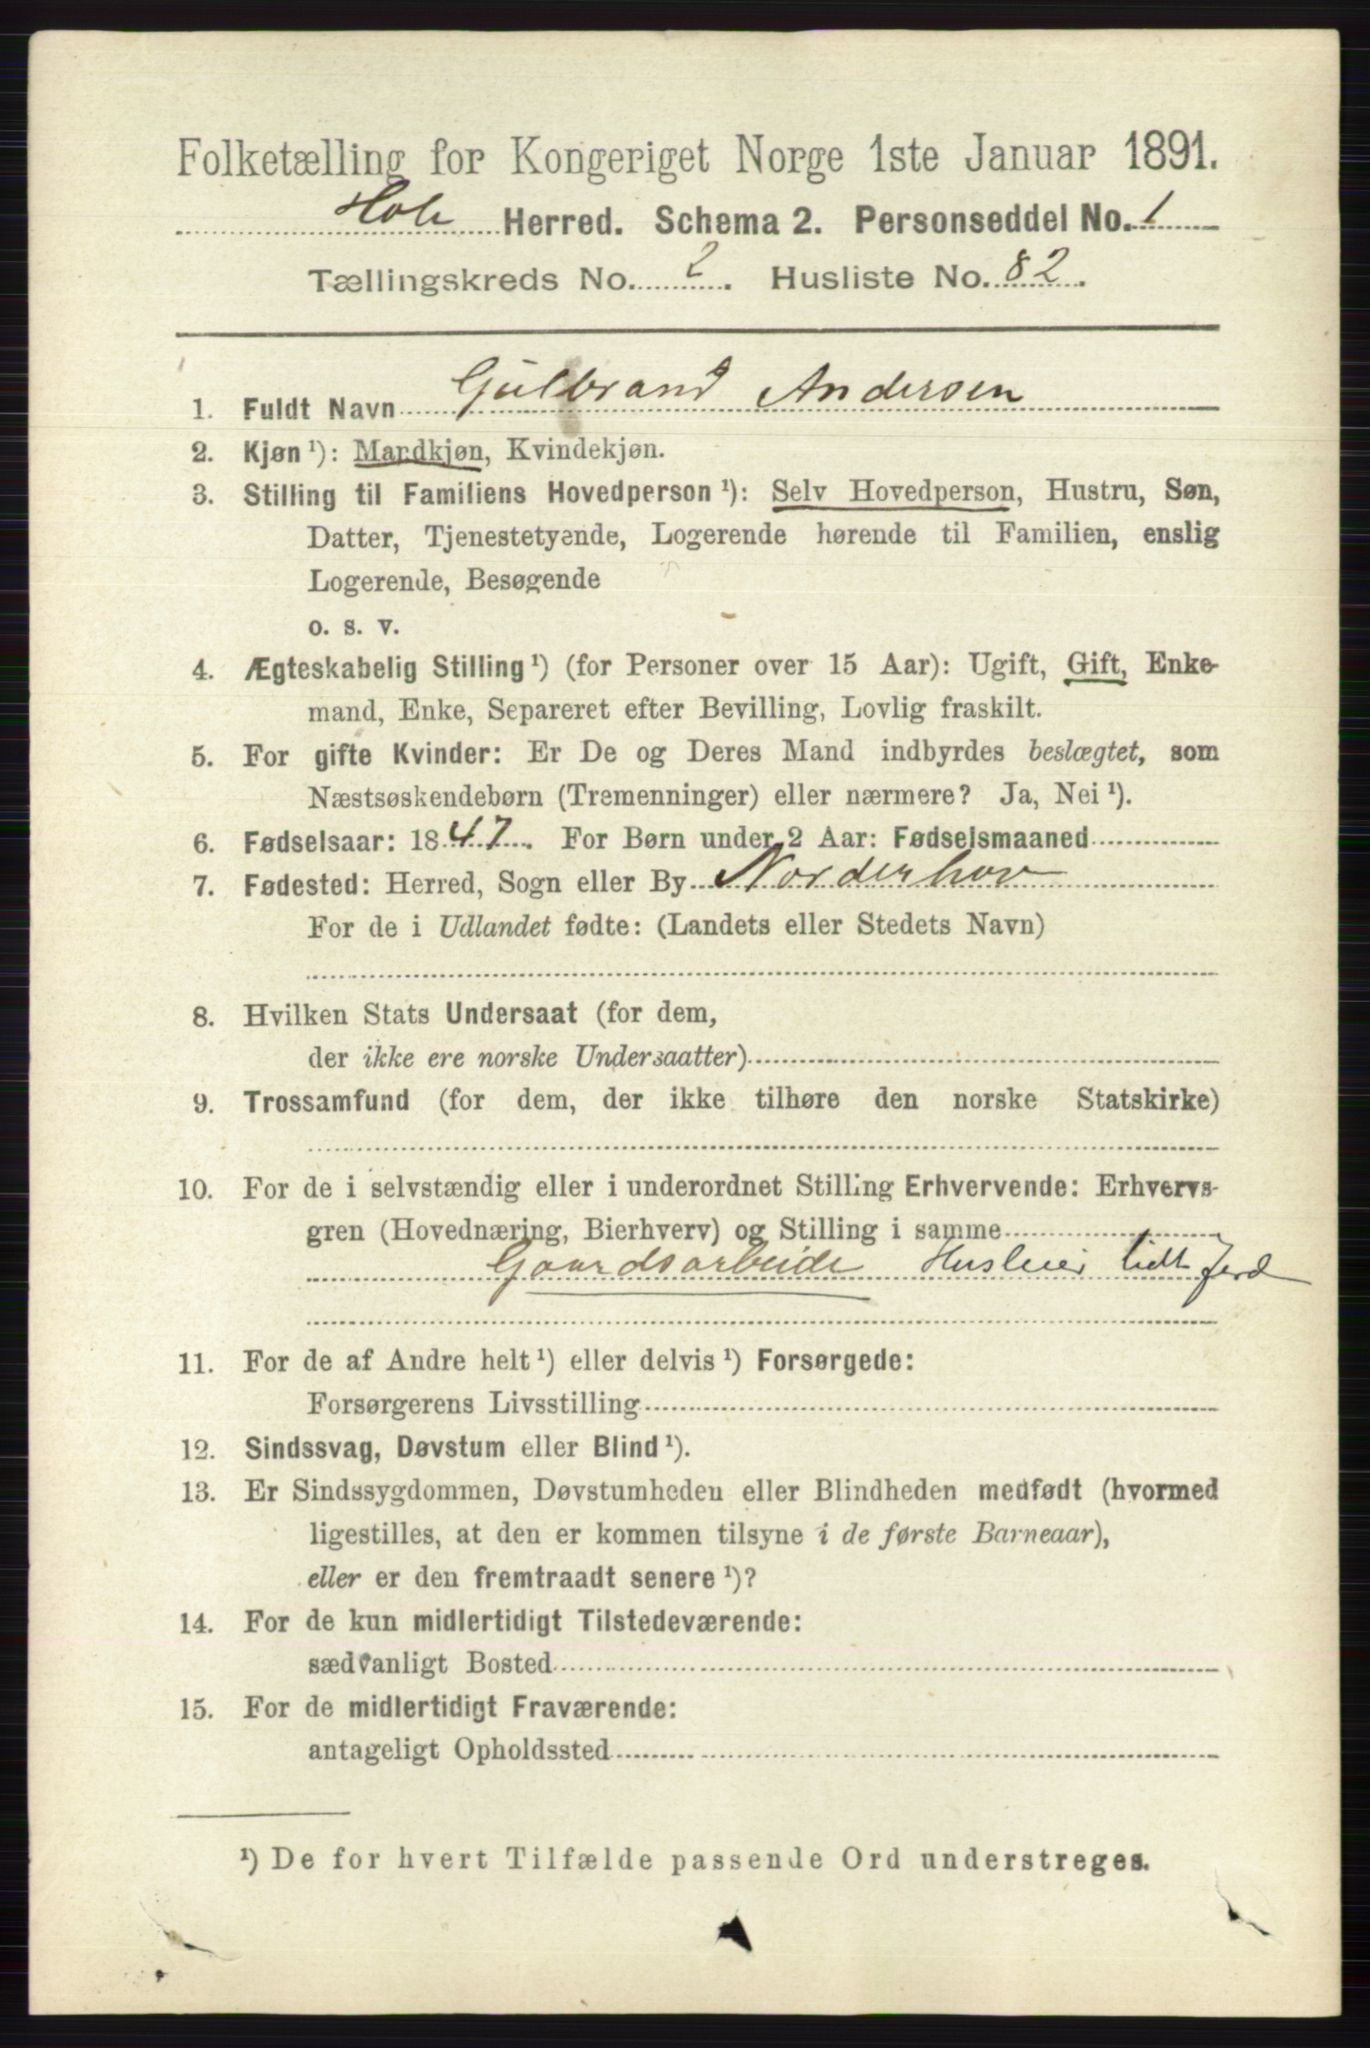 Folketælling for Kongeriget Norge 1ste Januar 1891.
Hole Herred. Schema 2. Personseddel No. 1
Tællingskreds No. 2. Husliste No. 82.
1. Fuldt Navn Gulbrand Andersen
2. Kjøn¹): Mandkjøn, Kvindekjøn.
3. Stilling til Familiens Hovedperson¹): Selv Hovedperson, Hustru, Søn,
Datter, Tjenestetyende, Logerende hørende til Familien, enslig
Logerende, Besøgende
o. s. v.
4. Ægteskabelig Stilling¹) (for Personer over 15 Aar): Ugift, Gift, Enke-
mand, Enke, Separeret efter Bevilling, Lovlig fraskilt.
5. For gifte Kvinder: Er De og Deres Mand indbyrdes beslægtet, som
Næstsøskendebørn (Tremenninger) eller nærmere? Ja, Nei¹).
6. Fødselsaar: 1847. For Børn under 2 Aar: Fødselsmaaned
7. Fødested: Herred, Sogn eller By Norderhov
For de i Udlandet fødte: (Landets eller Stedets Navn)
8. Hvilken Stats Undersaat (for dem,
der ikke ere norske Undersaatter)
9. Trossamfund (for dem, der ikke tilhøre den norske Statskirke)
10. For de i selvstændig eller i underordnet Stilling Erhvervende: Erhvervs-
gren (Hovednæring, Bierhverv) og Stilling i samme
Gaardsarbeide Husleier lidt Jord
11. For de af Andre helt¹) eller delvis¹) Forsørgede:
Forsørgerens Livsstilling
12. Sindssvag, Døvstum eller Blind¹).
13. Er Sindssygdommen, Døvstumheden eller Blindheden medfødt (hvormed
ligestilles, at den er kommen tilsyne i de første Barneaar),
eller er den fremtraadt senere¹)?
14. For de kun midlertidigt Tilstedeværende:
sædvanligt Bosted
15. For de midlertidigt Fraværende:
antageligt Opholdssted
¹) De for hvert Tilfælde passende Ord understreges.